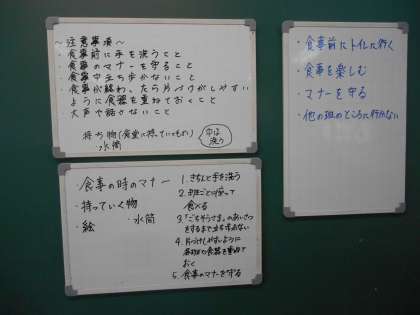 ～注意事項～
・食事前に手を洗うこと
・食事のマナーを守ること
・食事中立ち歩かないこと
・食事が終わったら片づけがしやすい
ように食器を重ねておくこと
・大声で話さないこと
持ち物(食堂に持っていくもの)
水筒
中は洗う
・食事の時のマナー
・持っていく物
・水筒
・絵
1. きちんと手を洗う
2. 班ごとに座って
食べる
3.「ごちそうさま」のあいさつ
をするまで立ち歩かない
4. 片づけしやすいように
食器を重ねて
おく
5. 食事のマナーを守る
・食事前にトイレに行く
・食事を楽しむ
・マナーを守る
・他の班のところに行かない